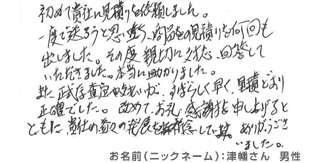 初めて貴社に見積りを依頼しました。
一度で決ろうと思い違う、内容の見積りを何回も
出しました。その度親切に対応、回答して
いただきました。本当に助かりました。
また正式査定から支払いが、すばらしく早く、見積どおり
正確でした。改めて、お礼、感謝を申し上げると
ともに貴社の益々の発展を祈念しています。ありがとうござ
いました。
お名前(ニックネーム):津幡さん 男性